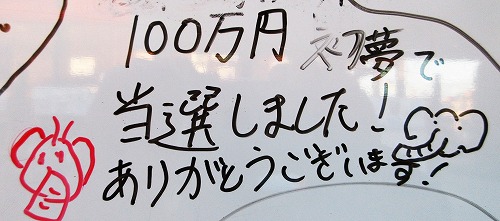 100万円 初夢で
当選しました!
ありがとうございます!